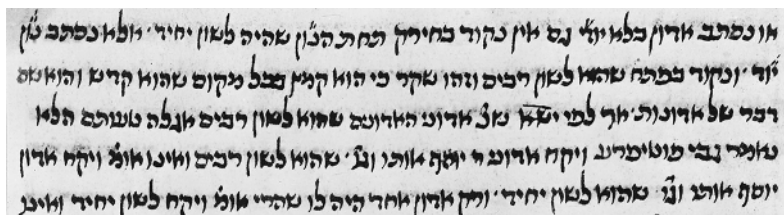 או נכתב אדון בלא יו"ד גם אין נקוד בחירק תחת הנו"ן שהיה לשון יחיד · אלא נכתב נו"ן
יו"ד · ונקוד בפתח שהוא לשון רבים וזהו שקר כי הוא קמץ בכל מקום שהוא קדש והוא שם
דבר של אדונות · אך למי שנ' אדוני האדונים שהוא לשון רבים אגלה טעותם הלא
נאמר גבי פוטיפרע ויקח אדוני יוסף אותו וגו' · שהוא לשון רבים ואינו אומ' ויקח אדון
יוסף אותו וגו' שהוא לשון יחיד · ורק אדון אחד היה לו שהרי אומ' ויקח לשון יחיד ואינו